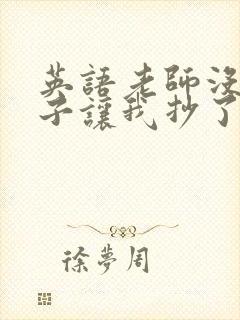 英語老師沒
子讓我抄了
徐夢周